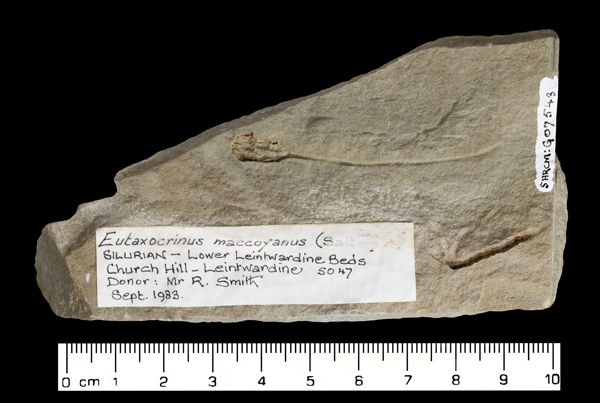 Eutaxocrinus maccoyanus (Salt
SILURIAN – Lower Leintwardine Beds
Church Hill – Leintwardine SO 47
Donor: Mr R. Smith
Sept. 1983.
SHRCM:G07543
0 cm 1 2 3 4 5 6 7 8 9 10